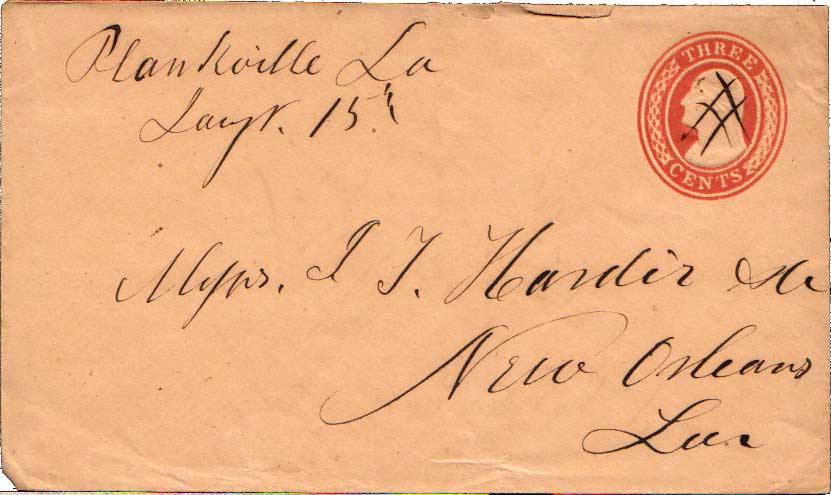 Plankville La
15th
THREE
CENTS
Messrs. J J. Hardir &c
New Orleans
Lou